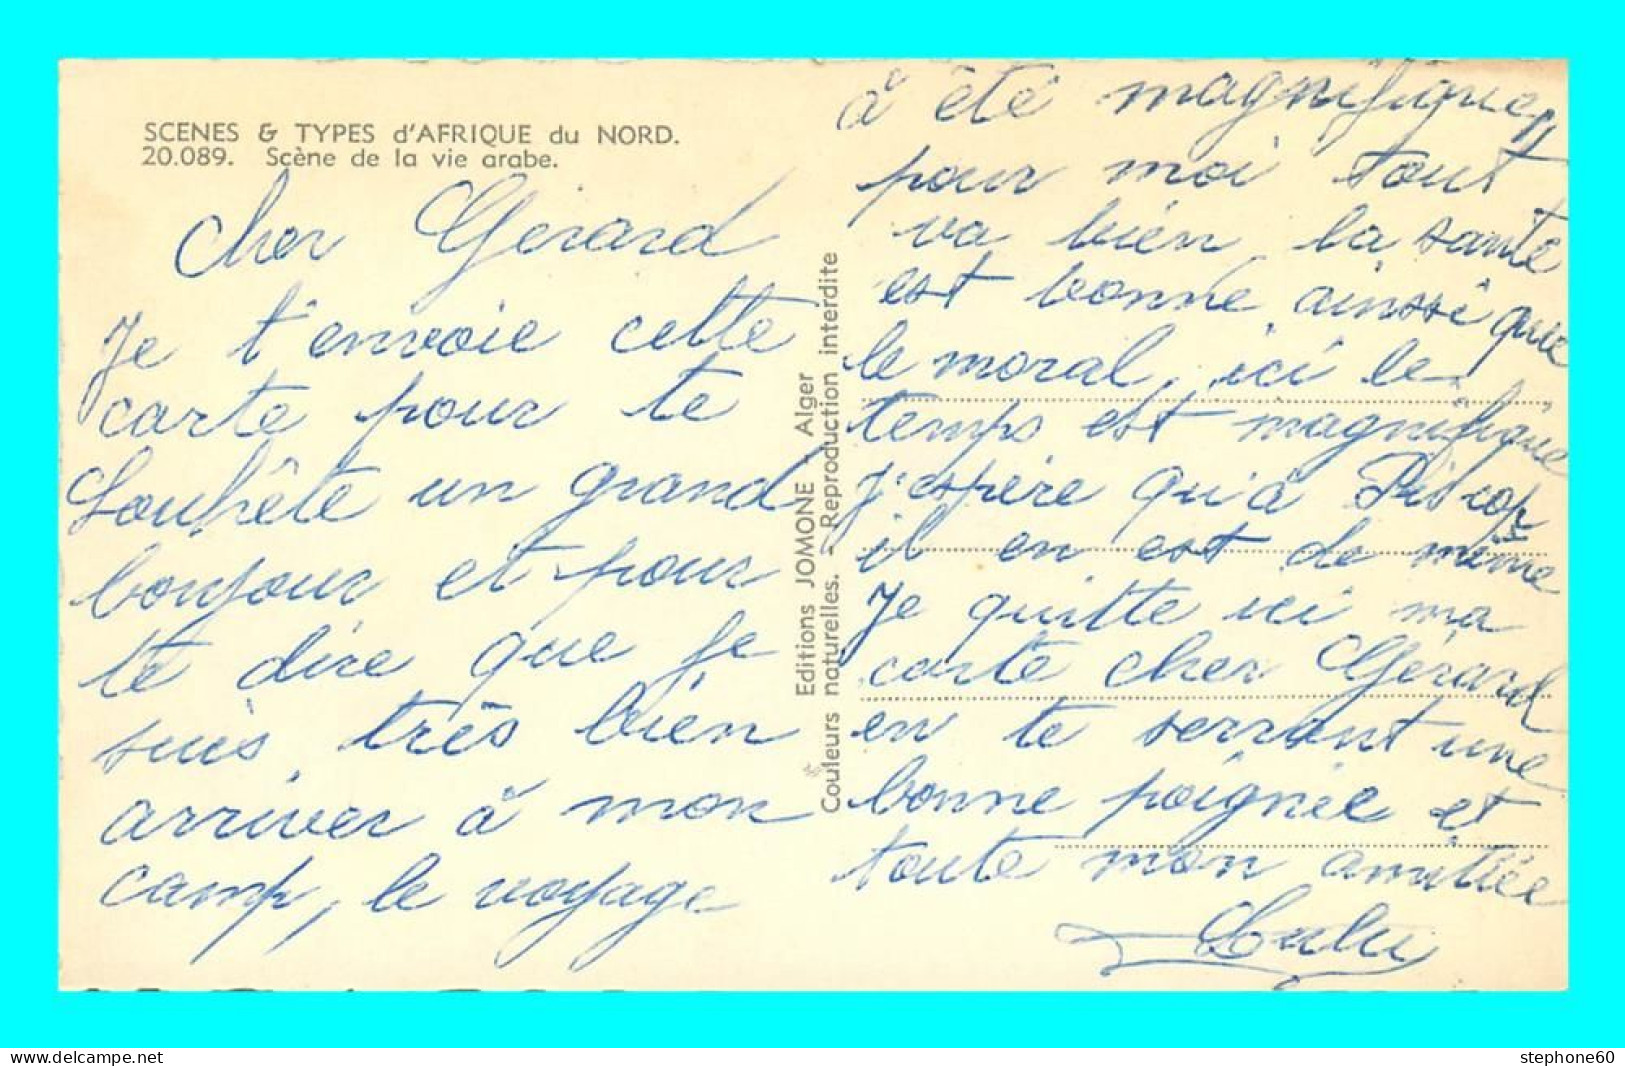 SCENES & TYPES d'AFRIQUE du NORD.
20.089. Scène de la vie arabe.
Cher Gérard
Je t'envoie cette
carte pour te
souhête un grand
bonjour et pour
te dire que je
suis très bien
arriver à mon
camp, le voyage
Editions JOMONE - Alger
Couleurs naturelles. - Reproduction interdite
à été magnifique,
pour moi tout
va bien, la santé
est bonne, ainsi que
le moral, ici le
temps est magnifique
j'espère qu'à Piscop
il en est de même
Je quitte ici ma
carte cher Gérard
en te serrant une
bonne poignée et
toute mon amitiée
Lulu
stephone60